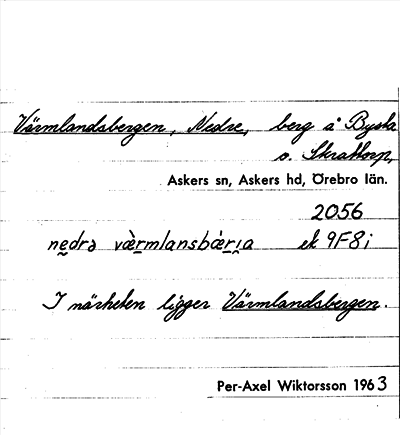 Värmlandsbergen, Nedre, berg å Bysta
o. Skrattorp,
Askers sn, Askers hd, Örebro län.
2056
nedrə væ̀rmlansbæ̀rja ek 9F8i
I närheten ligger Värmlandsbergen.
Per-Axel Wiktorsson 1963